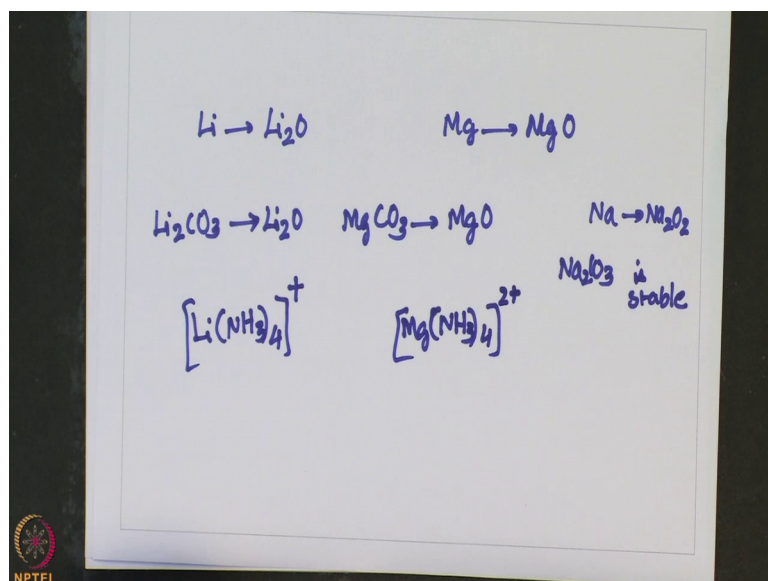 Li → Li₂O
Mg → MgO
Li₂CO₃ → Li₂O
MgCO₃ → MgO
Na → Na₂O₂
Na₂CO₃ is
stable
[Li(NH₃)₄]⁺
[Mg(NH₃)₄]²⁺
NPTEL